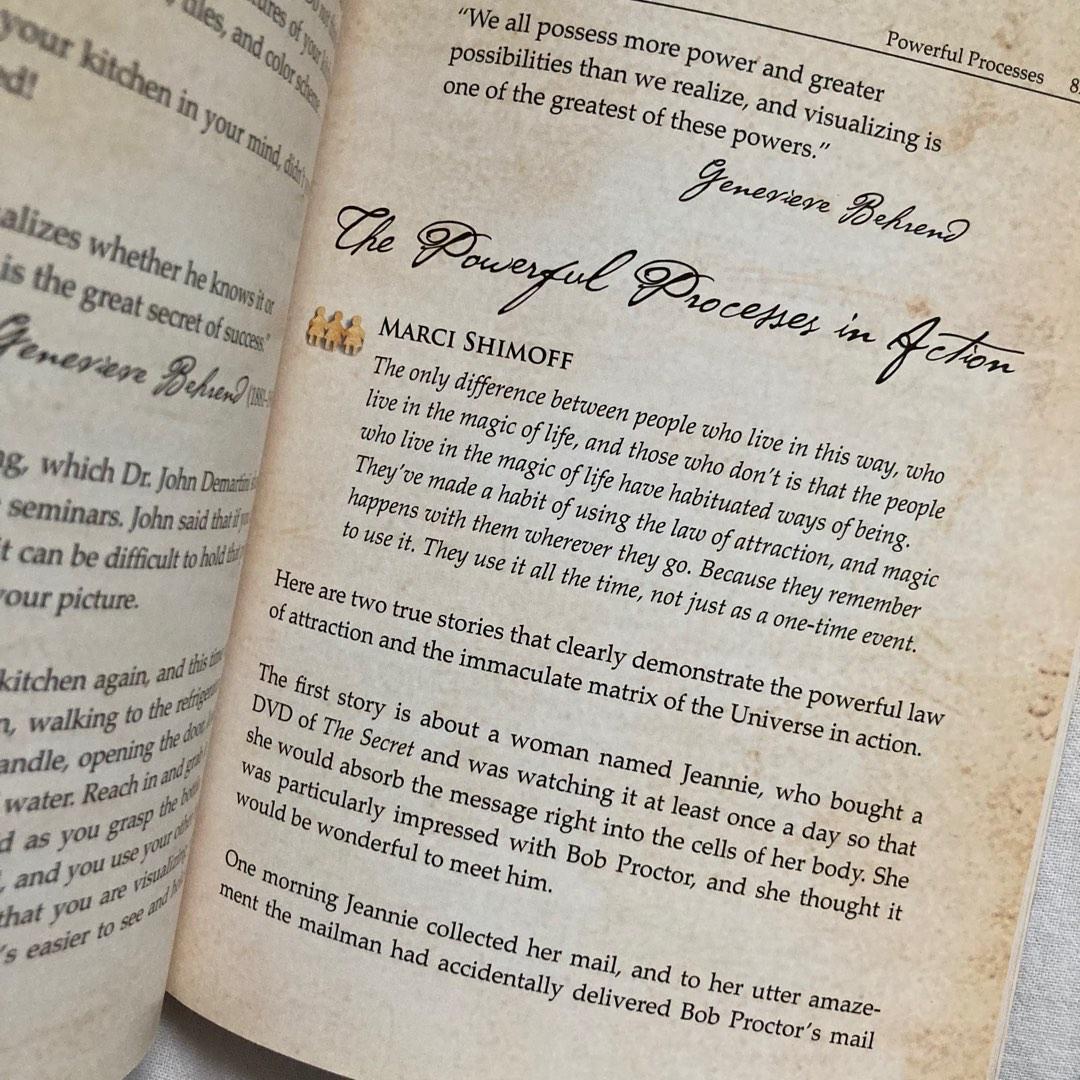 tures of your
tiles, and color scheme
your kitchen in your mind, didn't
ed!
alizes whether he knows it or
is the great secret of success."
Genevieve Behrend
ng, which Dr. John Demartini
seminars. John said that if you
it can be difficult to hold that
your picture.
kitchen again, and this time
n, walking to the refrigerator
andle, opening the door,
water. Reach in and grab
d as you grasp the
, and you use your other
that you are visualizing
's easier to see and hold
Powerful Processes
"We all possess more power and greater
possibilities than we realize, and visualizing is
one of the greatest of these powers."
Genevieve Behrend
The Powerful Processes in Action
MARCI SHIMOFF
The only difference between people who live in this way, who
live in the magic of life, and those who don't is that the people
who live in the magic of life have habituated ways of being.
They've made a habit of using the law of attraction, and magic
happens with them wherever they go. Because they remember
to use it. They use it all the time, not just as a one-time event.
Here are two true stories that clearly demonstrate the powerful law
of attraction and the immaculate matrix of the Universe in action.
The first story is about a woman named Jeannie, who bought a
DVD of The Secret and was watching it at least once a day so that
she would absorb the message right into the cells of her body. She
was particularly impressed with Bob Proctor, and she thought it
would be wonderful to meet him.
One morning Jeannie collected her mail, and to her utter amaze-
ment the mailman had accidentally delivered Bob Proctor's mail